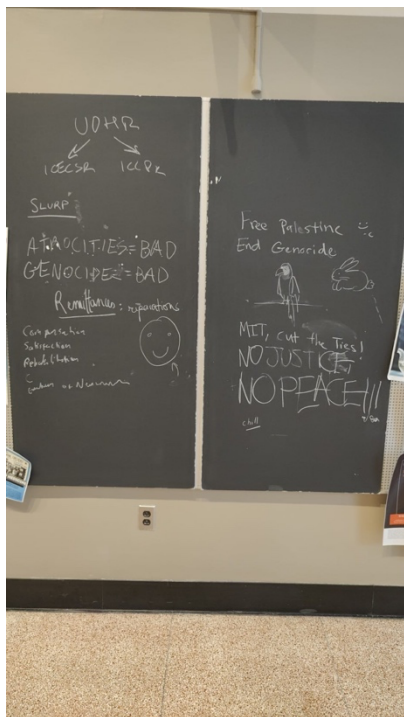 UDHR
ICECSR ICCPR
SLURP:
ATROCITIES = BAD
GENOCIDE = BAD
Remittances: reparations
Compensation
Satisfaction
Rehabilitation
Free Palestine
End Genocide
MIT, cut the Ties!
NO JUSTICE
NO PEACE!!!
chill